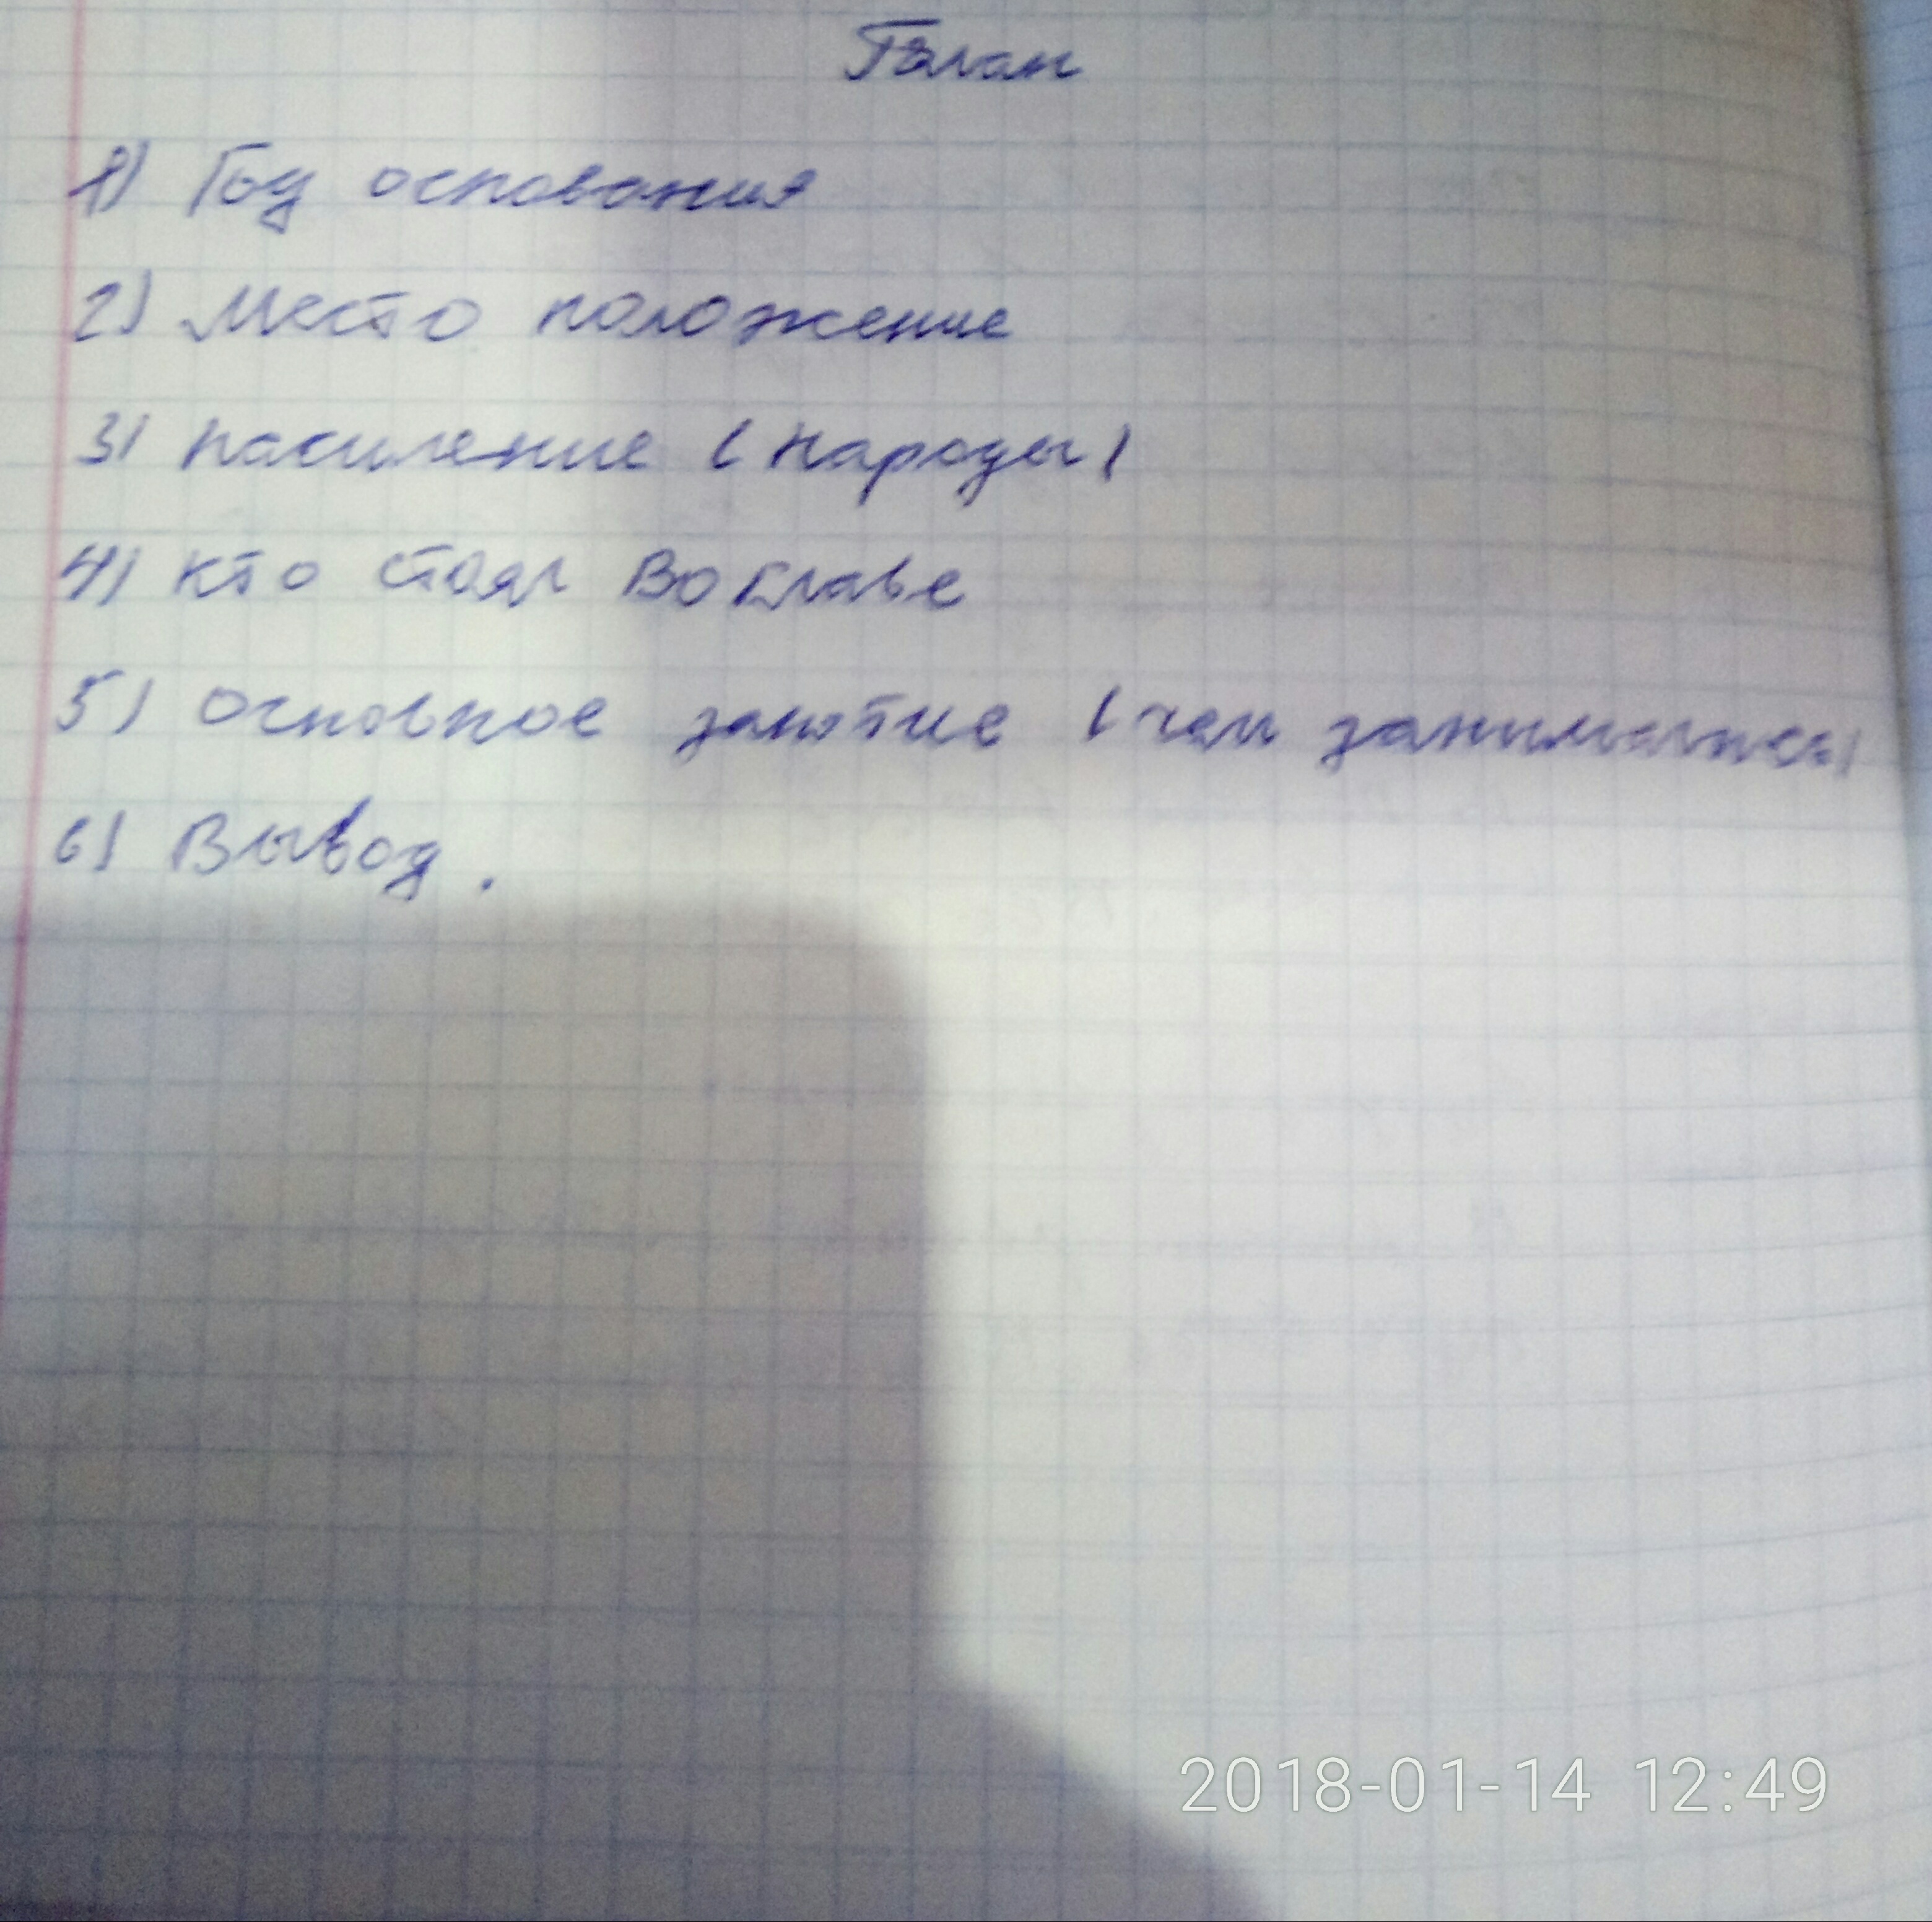 План
1) Год основания
2) Место положение
3) насиление (народы)
4) кто стоял Во главе
5) основное занятие (чем занимались)
6) Вывод.
2018-01-14 12:49